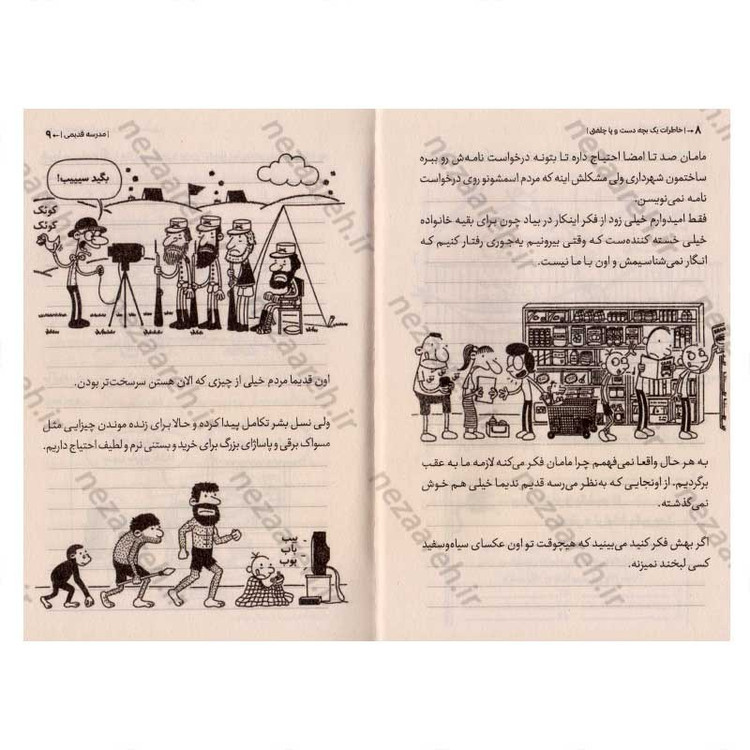 ۸ → | خاطرات یک بچه دست و پا چلفتی |
مامان صد تا امضا احتیاج داره تا بتونه درخواست نامه‌ش رو ببره
ساختمون شهرداری ولی مشکلش اینه که مردم اسمشونو روی درخواست
نامه نمی‌نویسن.
فقط امیدوارم خیلی زود از فکر اینکار در بیاد چون برای بقیه خانواده
خیلی خسته کننده‌ست که وقتی بیرونیم یه‌جوری رفتار کنیم که
انگار نمی‌شناسیمش و اون با ما نیست.
به هر حال واقعا نمی‌فهمم چرا مامان فکر می‌کنه لازمه ما به عقب
برگردیم. از اونجایی که به‌نظر می‌رسه قدیم ندیما خیلی هم خوش
نمی‌گذشته.
اگر بهش فکر کنید می‌بینید که هیچوقت تو اون عکسای سیاه‌وسفید
کسی لبخند نمیزنه.
| مدرسه قدیمی | ← ۹
بگید سیییب!
کوئک
کوئک
اون قدیما مردم خیلی از چیزی که الان هستن سرسخت‌تر بودن.
ولی نسل بشر تکامل پیدا کرده و حالا برای زنده موندن چیزایی مثل
مسواک برقی و پاساژای بزرگ برای خرید و بستنی نرم و لطیف احتیاج داریم.
بیب
باب
بوب
nezaareh.ir
nezaareh.ir
nezaareh.ir
nezaareh.ir
nezaareh.ir
nezaareh.ir